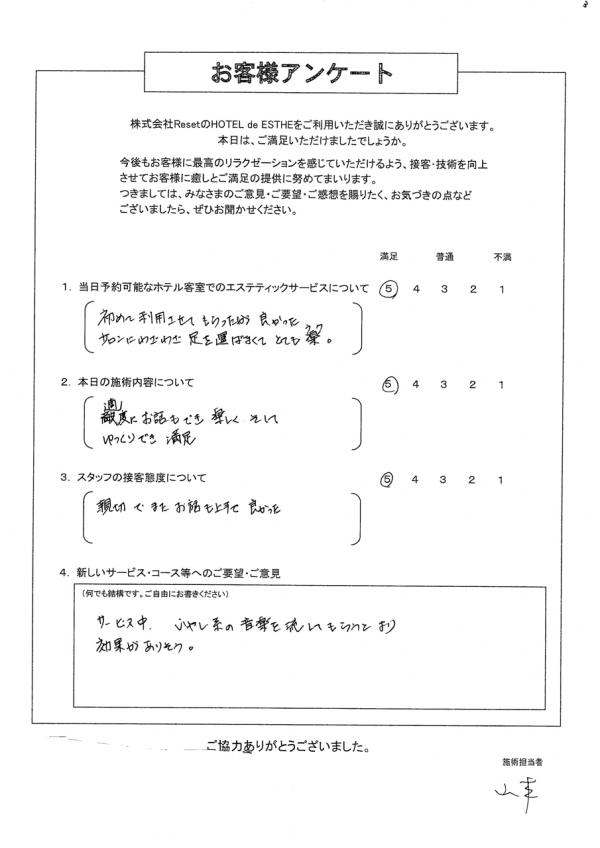 お客様アンケート
株式会社ResetのHOTEL de ESTHEをご利用いただき誠にありがとうございます。
本日は、ご満足いただけましたでしょうか。
今後もお客様に最高のリラクゼーションを感じていただけるよう、接客・技術を向上
させてお客様に癒しとご満足の提供に努めてまいります。
つきましては、みなさまのご意見・ご要望・ご感想を賜りたく、お気づきの点など
ございましたら、ぜひお聞かせください。
満足 普通 不満
1. 当日予約可能なホテル客室でのエステティックサービスについて 5 4 3 2 1
初めて利用させてもらったが良かった
サロンにわざわざ足を運ばなくてとても楽。
2. 本日の施術内容について 5 4 3 2 1
適度にお話もでき楽しくそして
ゆっくりでき満足
3. スタッフの接客態度について 5 4 3 2 1
親切でまたお話も上手で良かった
4. 新しいサービス・コース等へのご要望・ご意見
(何でも結構です。ご自由にお書きください)
サービス中、いやし系の音楽を流してもらうとより
効果がありそう。
ご協力ありがとうございました。
施術担当者
山本